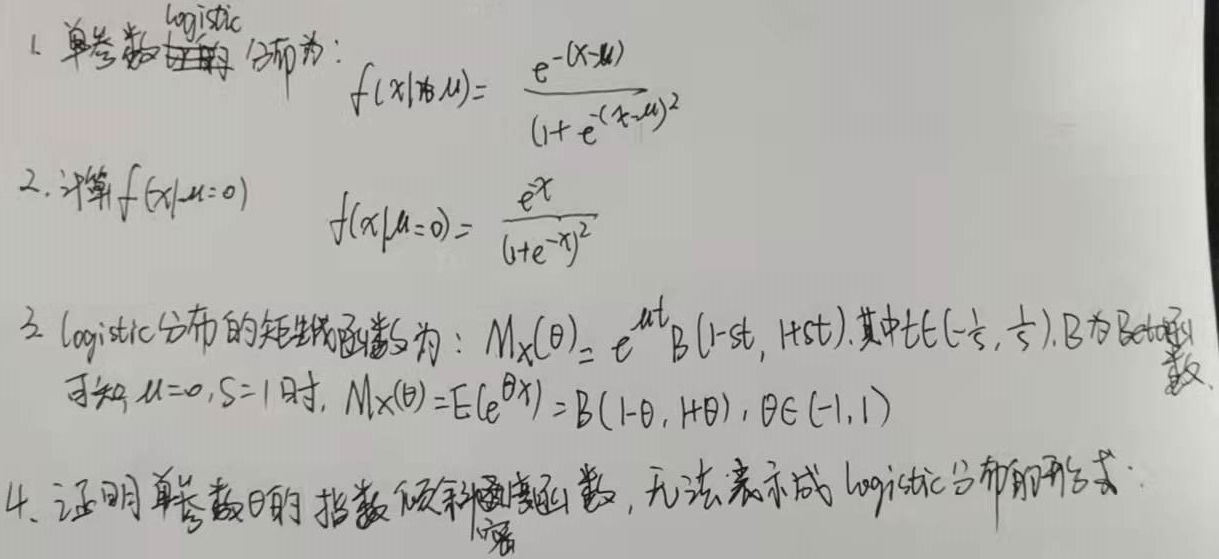 1. 单参数logistic分布为:
f(x|μ)= e^{-(x-μ)} / (1+e^{-(x-μ)})^2
2. 计算f(x|μ=0)
f(x|μ=0)= e^{-x} / (1+e^{-x})^2
3. logistic分布的矩生成函数为: M_X(θ)= e^{μt} B(1-st, 1+st).其中t∈(-1/s, 1/s).B为Beta函数.
可知 μ=0,S=1时, M_X(θ)=E(e^{θX})=B(1-θ, 1+θ), θ∈(-1,1)
4. 证明单参数θ的指数倾斜密度函数,无法表示成logistic分布的形式: